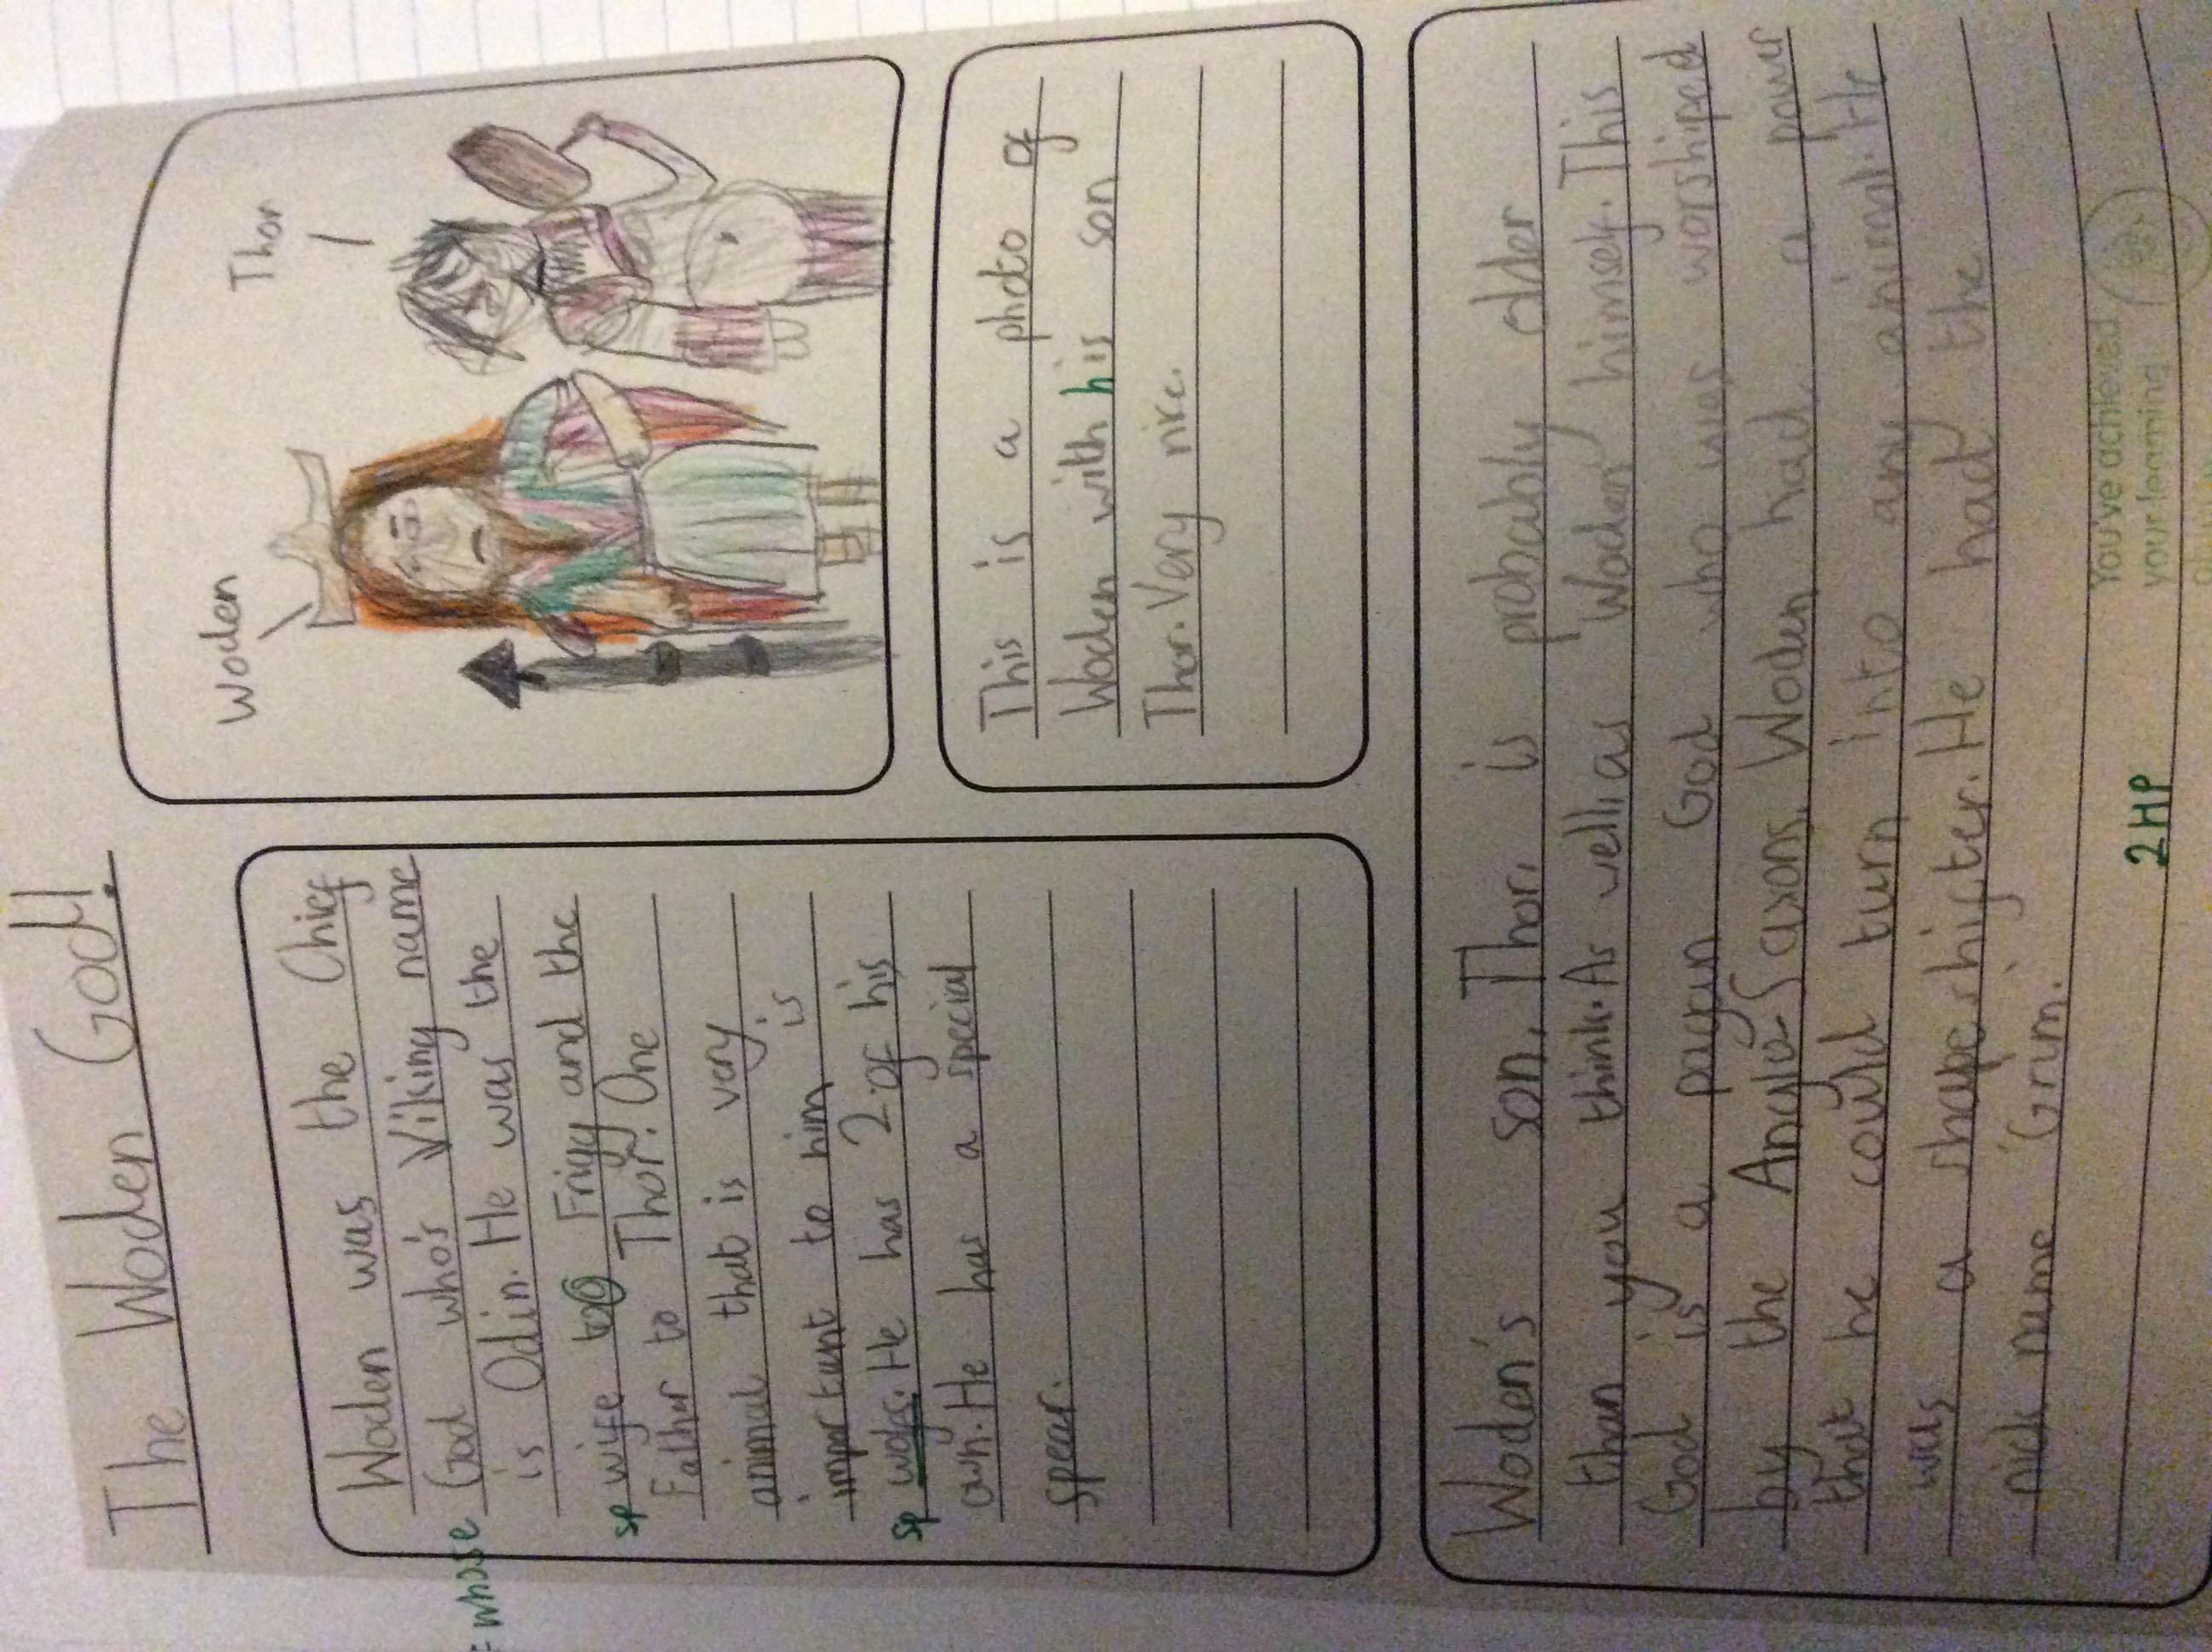 The Woden God!.
Woden was the Chief
= whose God who's Viking name
is Odin. He was the
sp wife too Frigg and the
Father to Thor. One
animal that is very
important to him is is
sp wolfs. He has 2 of his
own. He has a special
spear.
Woden
Thor
This is a photo of
Woden with his son
Thor. Very nice.
Woden's son, Thor, is probably older
than you think. As well, as Woden himself. This
God is a pagan God who was worshiped
by the Anglo-Saxons. Woden had a power
that he could turn into any animal. He
was a shapeshifter. He had the
nick name 'Grim.
2HP
You've achieved
your learning